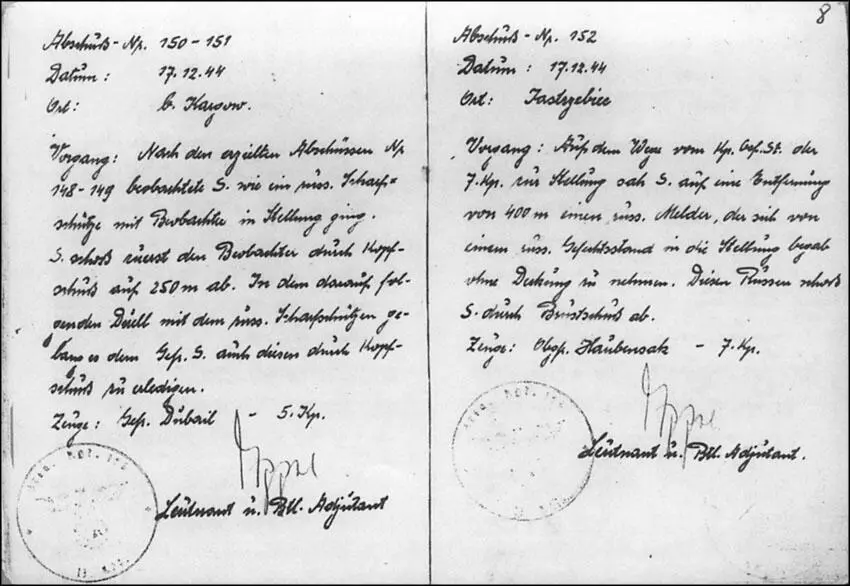 8
Abschuß-Nr. 150-151
Datum: 17.12.44
Ort: b. Kargow.
Vorgang: Nach den erzielten Abschüssen Nr
148-149 beobachtete S. wie ein russ. Scharf=
schütze mit Beobachter in Stellung ging.
S. schoß zuerst den Beobachter durch Kopf-
schuß auf 250 m ab. In dem darauf fol-
genden Duell mit dem russ. Scharfschützen ge-
lang es dem Gefr. S. auch diesen durch Kopf-
schuß zu erledigen.
Zeuge: Gefr. Dubail - 5. Kp.
Leutnant u. Btl. Adjutant
Abschuß-Nr. 152
Datum: 17.12.44
Ort: Jastrzebiec
Vorgang: Auf dem Wege vom Kp. Gef. St. der
7. Kp. zur Stellung sah S. auf eine Entfernung
von 400 m einen russ. Melder, der sich von
einem russ. Gefechtsstand in die Stellung begab
ohne Deckung zu nehmen. Diesen Russen schoß
S. durch Brustschuß ab.
Zeuge: Obgfr. Haubensak - 7. Kp.
Leutnant u. Btl. Adjutant.